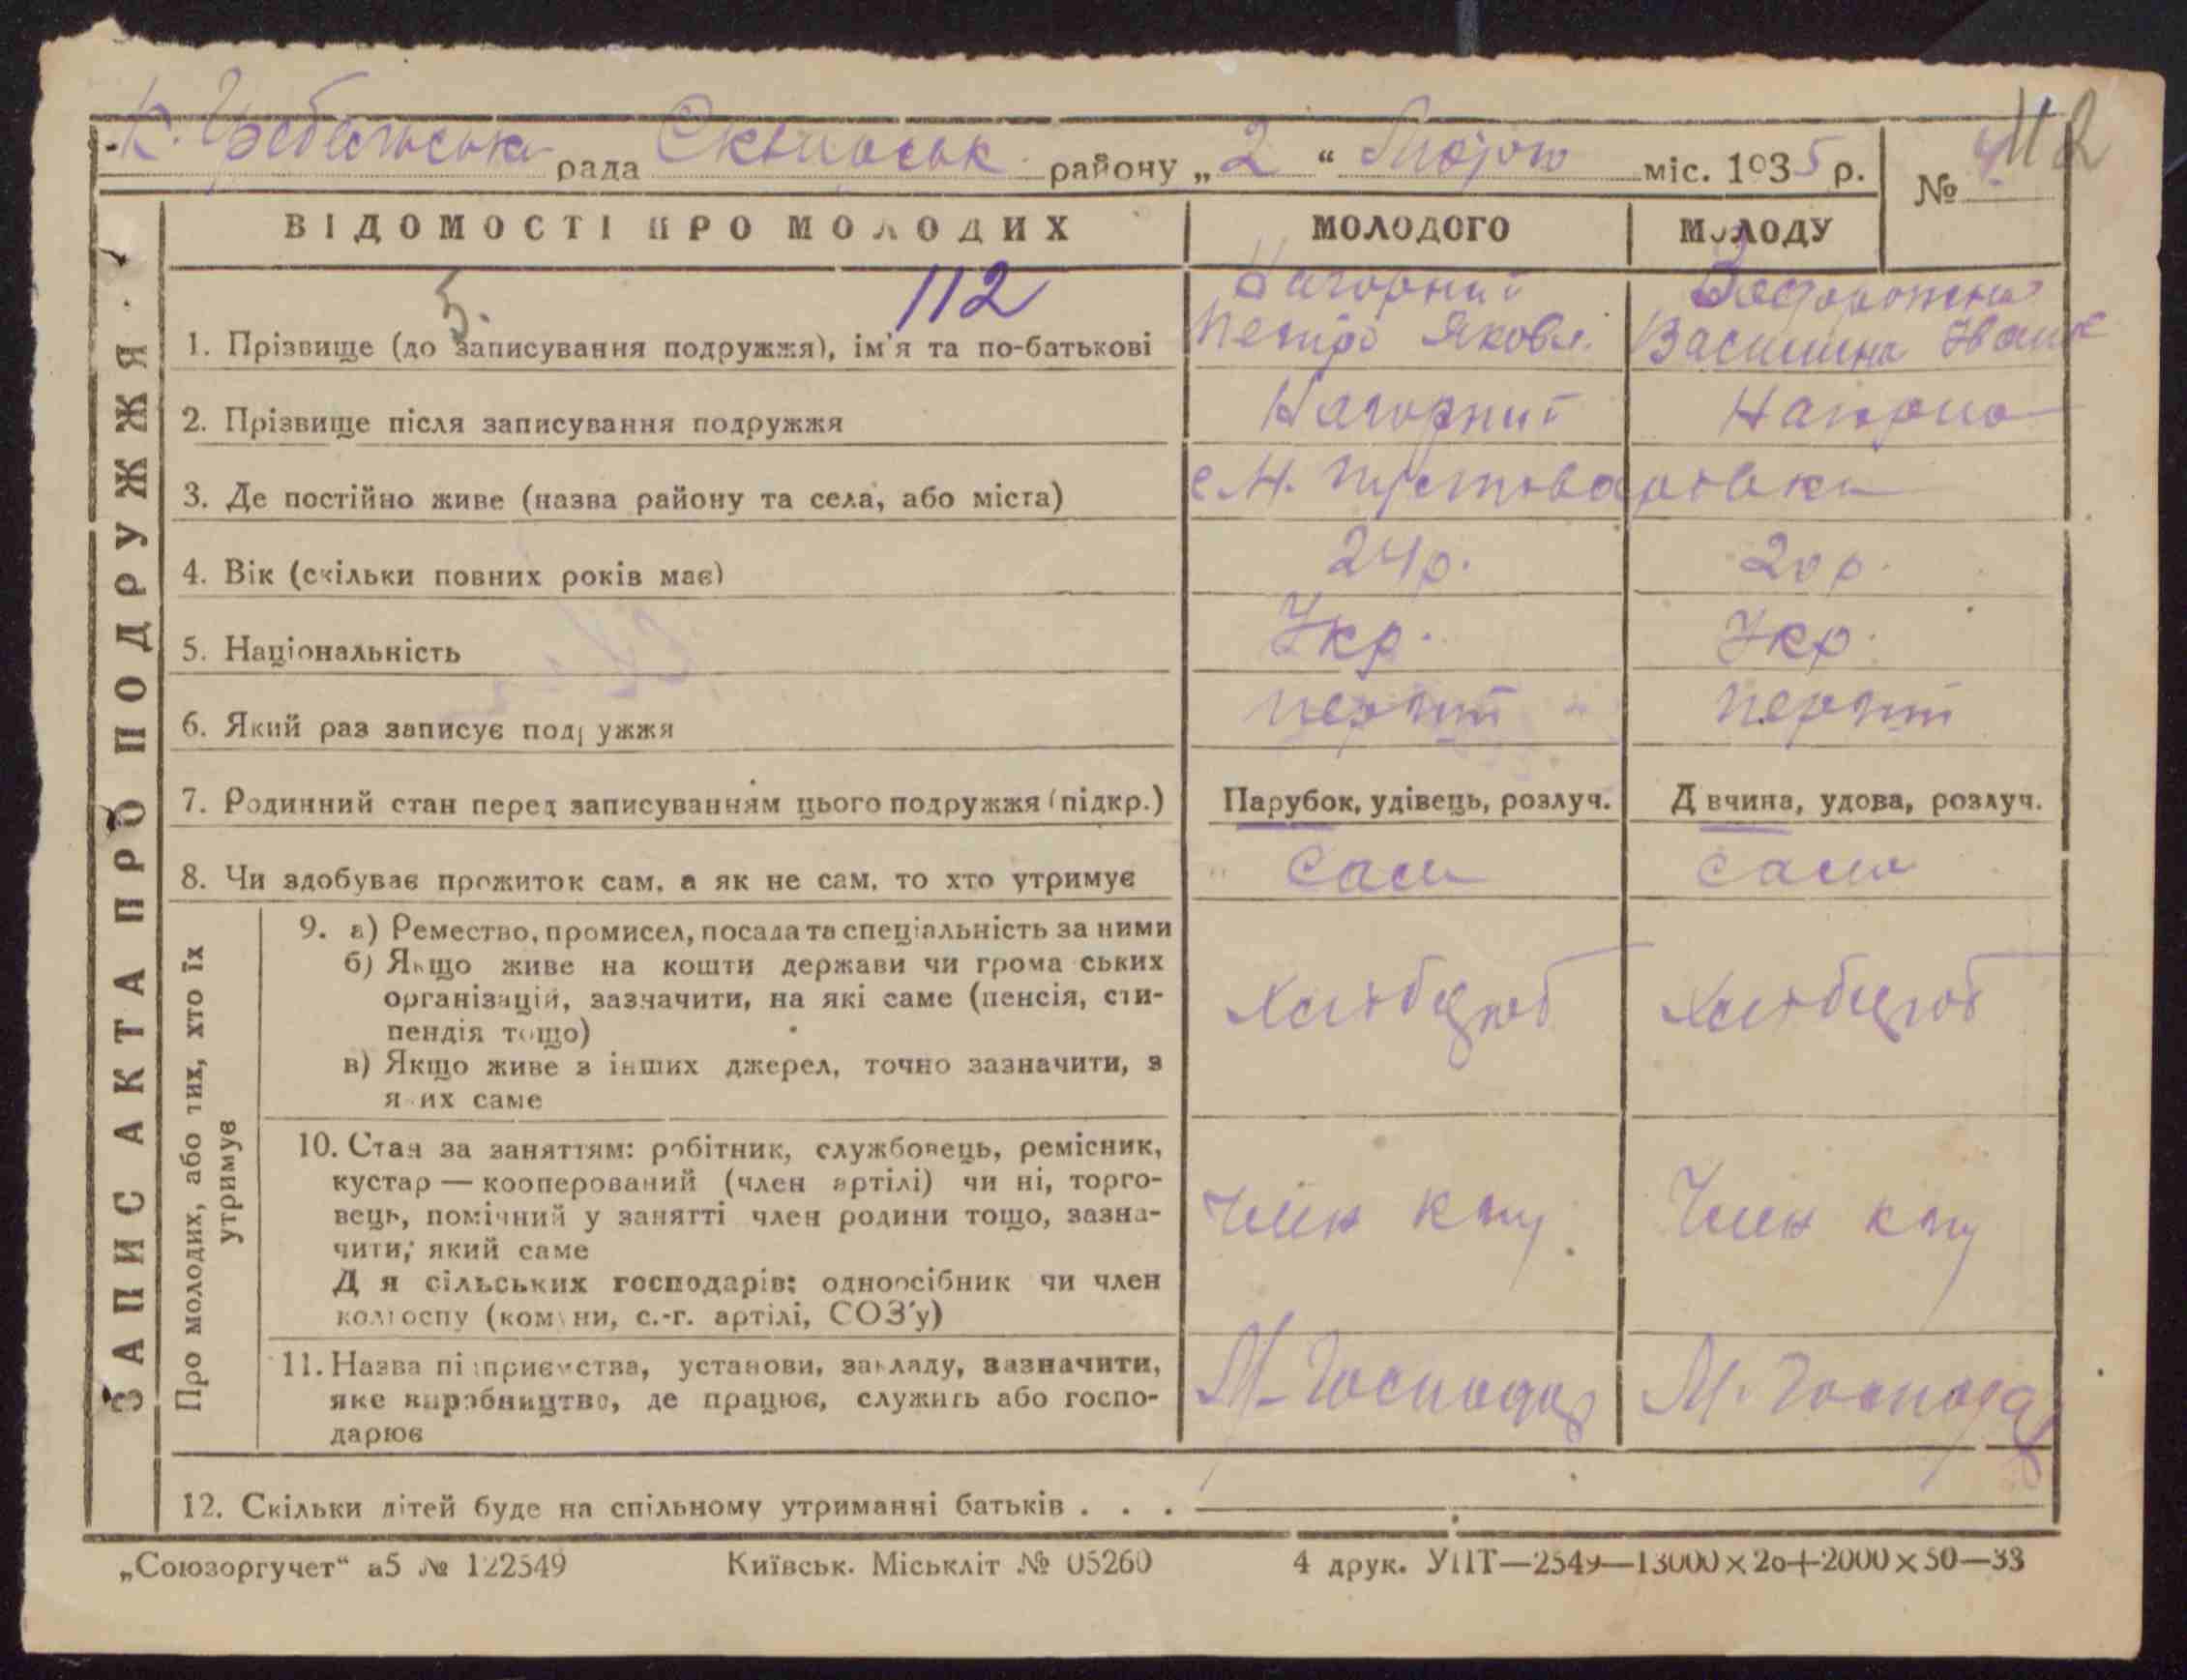 К. Гребельська рада Сквирськ району „2“ Лютого міс. 1935 р.
№ 4 112
ЗАПИС АКТА ПРО ПОДРУЖЖЯ
ВІДОМОСТІ ПРО МОЛОДИХ МОЛОДОГО МОЛОДУ
5. 112
1. Прізвище (до записування подружжя), ім'я та по-батькові Нагорний Петро Яковл. Василина Іван
2. Прізвище після записування подружжя Нагорний Нагорна
3. Де постійно живе (назва району та села, або міста) с М. Пустоварівка
4. Вік (скільки повних років має) 24 р. 20 р.
5. Національність Укр. Укр.
6. Який раз записує подружжя перший перший
7. Родинний стан перед записуванням цього подружжя (підкр.) Парубок, удівець, розлуч. Д вчина, удова, розлуч.
8. Чи здобуває прожиток сам, а як не сам, то хто утримує сам сама
Про молодих, або тих, хто їх утримує
9. а) Ремество, промисел, посада та спеціальність за ними
б) Якщо живе на кошти держави чи грома ських
організацій, зазначити, на які саме (пенсія, сти-
пендія тощо)
в) Якщо живе з інших джерел, точно зазначити, з
я их саме
Хлібороб Хлібороб
10. Стан за заняттям: робітник, службовець, ремісник,
кустар — кооперований (член артілі) чи ні, торго-
вець, помічний у занятті член родини тощо, зазна-
чити, який саме
Д я сільських господарів: одноосібник чи член
колгоспу (комуни, с.-г. артілі, СОЗ'у)
Член клгу. Член клгу
11. Назва підприємства, установи, закладу, зазначити,
яке виробництво, де працює, служить або госпо-
дарює
М. Господар М. Господар
12. Скільки дітей буде на спільному утриманні батьків . . .
„Союзоргучет“ а5 № 122549 Київськ. Міськліт № 05260 4 друк. УПТ—2549—13000×20+2000×50—33